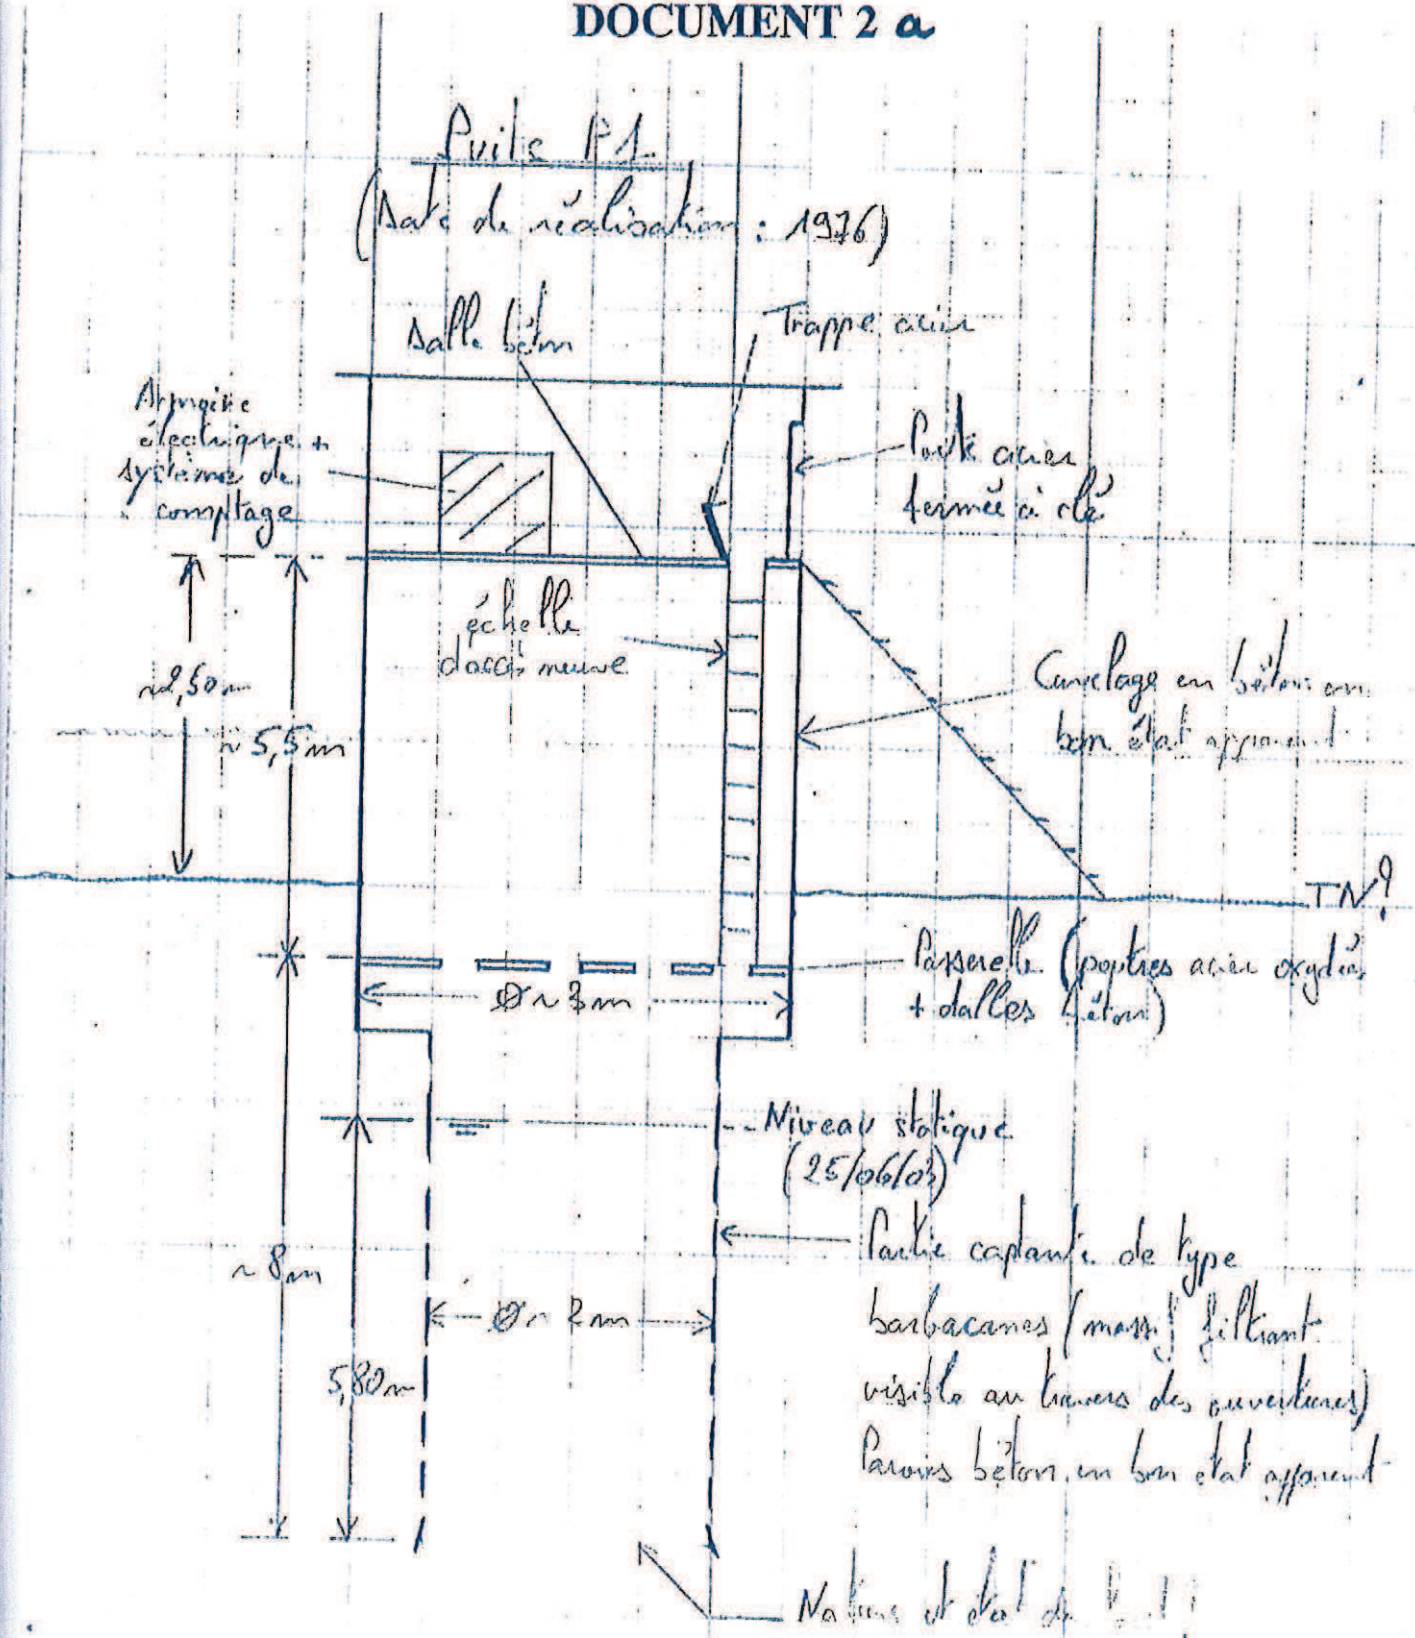 DOCUMENT 2 a
Puits P1
(Date de réalisation : 1976)
Dalle béton
Trappe acier
Armoire
électrique +
système de
comptage
Porte acier
fermée à clé
échelle
d'accès neuve
~2,50m
~5,5m
Cuvelage en béton en
bon état apparent
TN?
Passerelle (poutres acier oxydées
+ dalles béton)
Ø~3m
Niveau statique
(25/06/03)
Partie captante de type
barbacanes (massif filtrant
visible au travers des ouvertures)
Parois béton en bon état apparent
~8m
Ø~2m
5,80m
Nature et état du